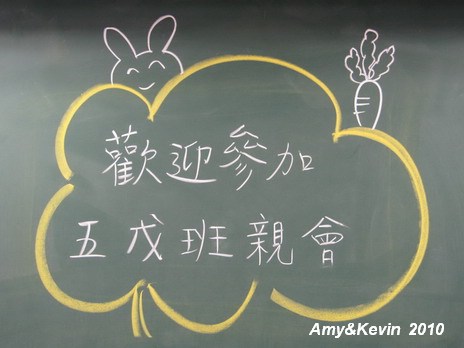 歡迎參加
五戊班親會
Amy&Kevin 2010